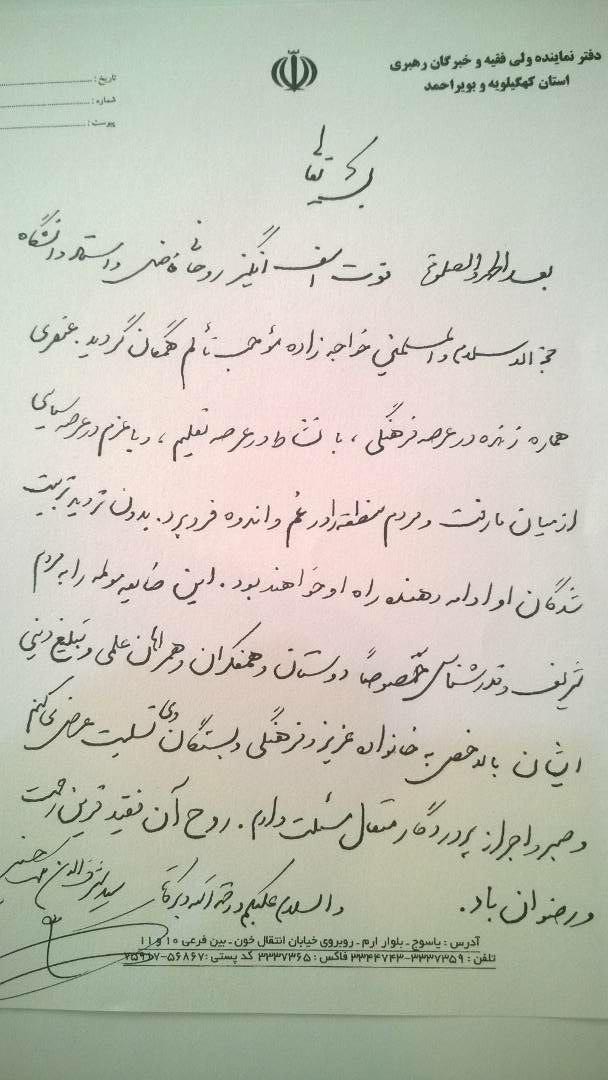 دفتر نماینده ولی فقیه و خبرگان رهبری
استان کهگیلویه و بویراحمد
تاریخ :
شماره :
پیوست :
بعد الحمد والصلوة فوت اسف انگیز روحانی فاضل و استاد دانشگاه
حجة الاسلام والمسلمین خواجه زاده موجب تألم همگان گردید. عنصری
همواره زنده در عرصه فرهنگی ، با نشاط در عرصه تعلیم ، و با عزم در عرصه سیاسی
از میان ما رفت و مردم منطقه را در غم و اندوه فرو برد. بدون تردید تربیت
شدگان او ادامه دهنده راه او خواهند بود. این ضایعه مولمه را به مردم
شریف و قدرشناس خصوصاً دوستان و همفکران و همراهان علمی و تبلیغ دینی
ایشان بالاخص به خانواده عزیز و فرهنگی و بستگان وی تسلیت عرض می کنم
و صبر و اجر از پروردگار متعال مسئلت دارم. روح آن فقید قرین رحمت
و رضوان باد. والسلام علیکم و رحمة الله و برکاته
سید شرف الدین ملک حسینی
آدرس : یاسوج ـ بلوار ارم ـ روبروی خیابان انتقال خون ـ بین فرعی ۱۰ و ۱۱
تلفن : ۳۳۳۷۳۵۹-۳۳۴۴۷۴۳ فاکس : ۳۳۳۷۳۶۵ کد پستی : ۵۶۸۶۷-۷۵۹۱۷